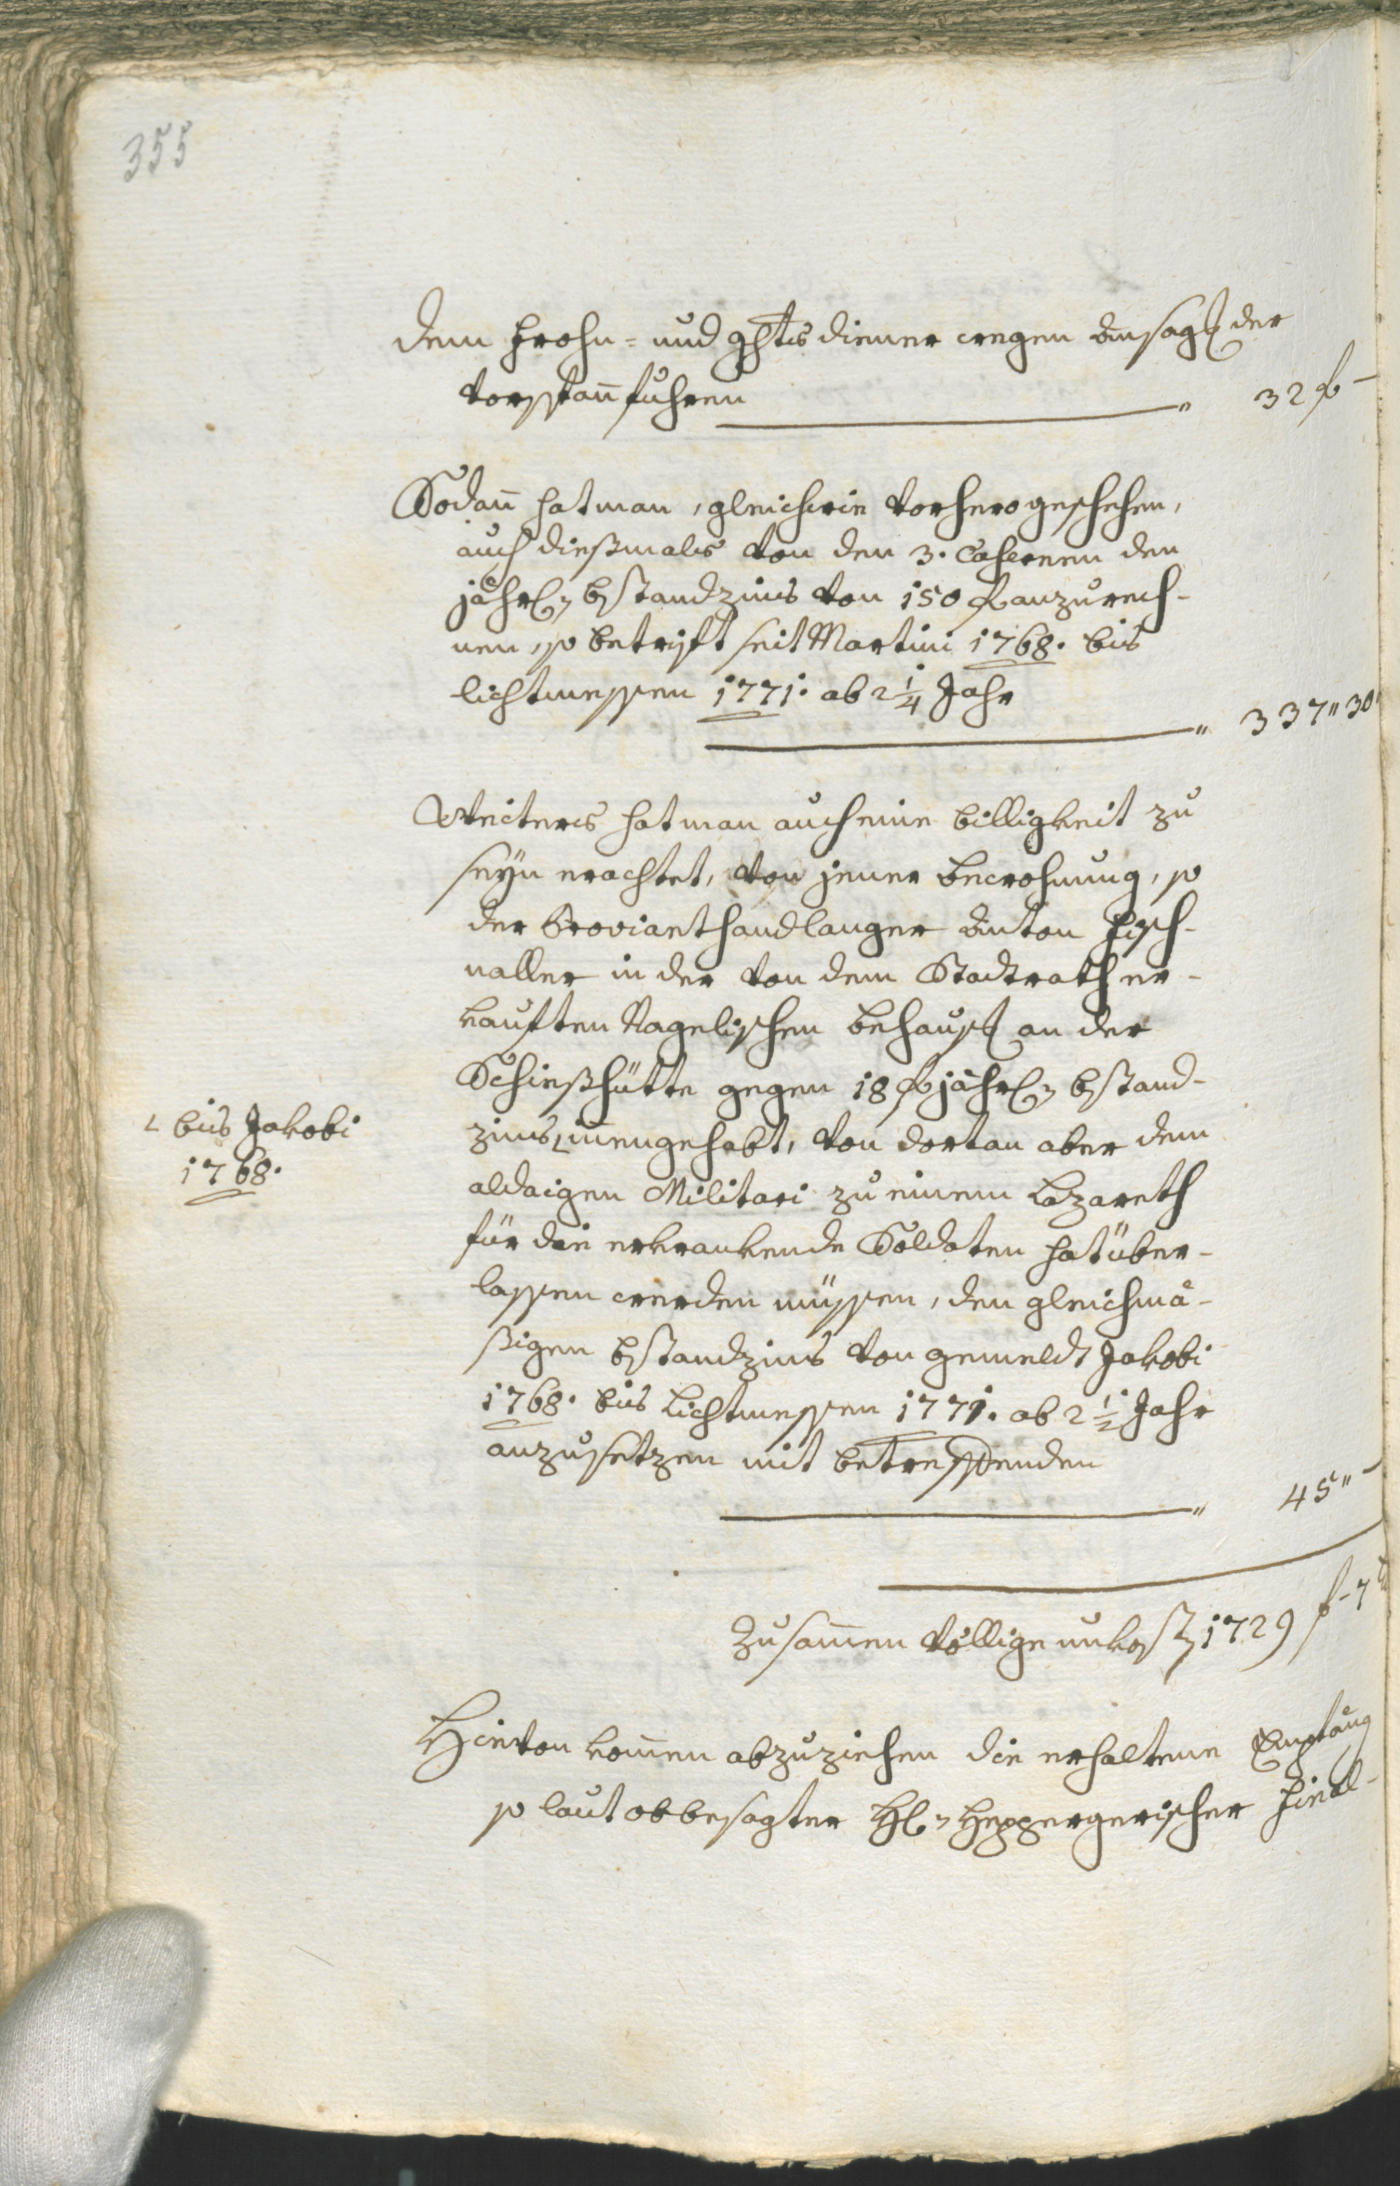 355
Dem Frohn- und ghts diener wegen Ansag der
Vorspannfuhren " 32 f -
Sodann hat man, gleichwie vorhero geschehen,
auch dießmals von den 3. Casernen den
jährl. bstandzins von 150 f anzurech-
nen, so betrift seit Martini 1768. bis
lichtmessen 1771. ab 2 1/4 Jahr
" 337 " 30
Weiters hat man auch eine billigkeit zu
seyn erachtet, von jener bewohnung, so
der Provianthandlanger Anton Fisch-
naller in der von dem Stadtrath er-
kauften Nagelischen behaus an der
Schießhütte gegen 18 f jährl. bstand-
zins innengehabt, von dortan aber dem
aldaigen Militari zu einem Lazareth
für die erkrankende Soldaten hat über-
lassen werden müssen, den gleichmä-
ßigen bstandzins von gemeldt Jakobi
1768. bis Lichtmessen 1771. ab 2 1/2 Jahr
anzusetzen mit betreffenden
" 45 " -
bis Jakobi
1768.
Zusammen völlige unkost 1729 f - 7
Hievon kommen abzuziehen die erhaltene Empfäng
so laut obbesagter Hl. Heppergerischer Einl-